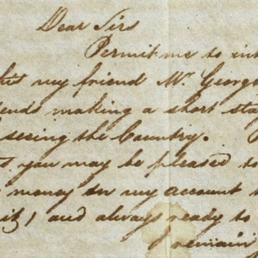 Dear Sirs
Permit me to int
my friend Mr. Georg
ends making a short sta
seeing the Country.
you may be pleased to
money on my account
it, and always ready to
I remain